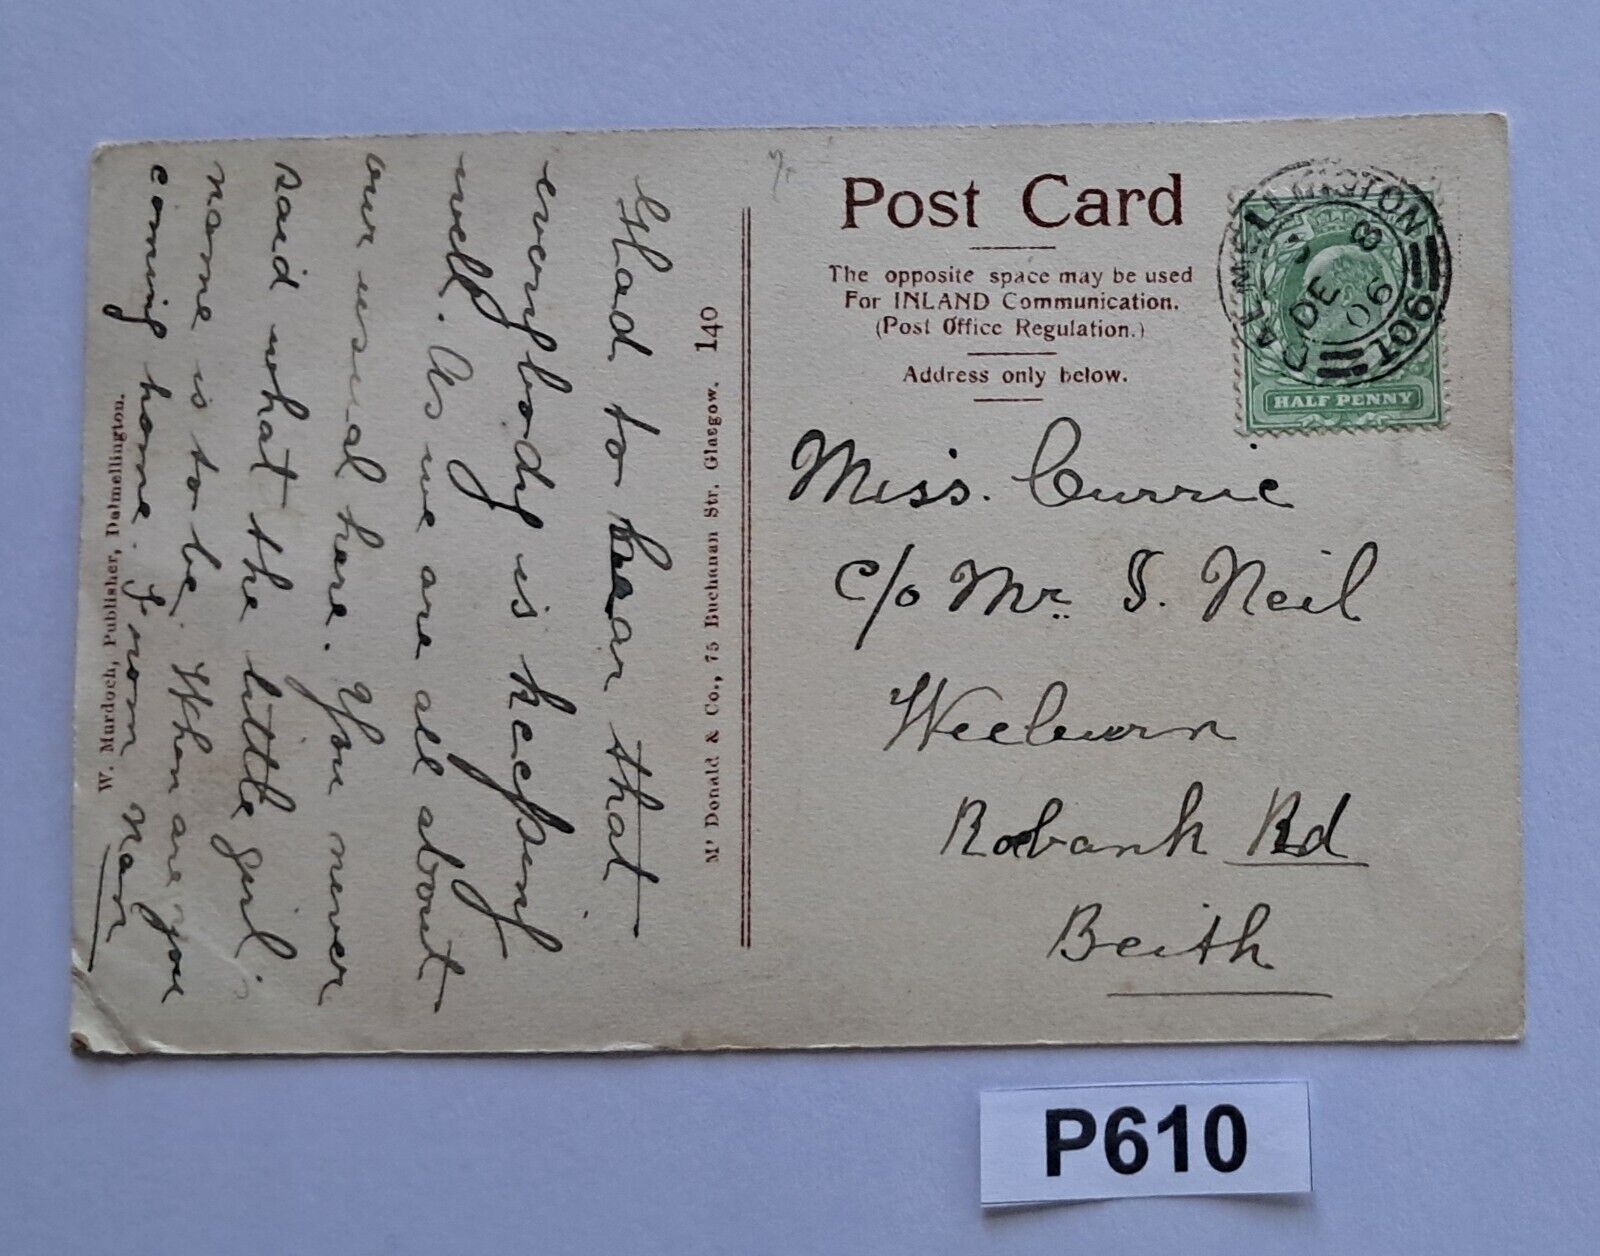 Glad to hear that
everybody is keeping
well. As we are all about
our usual here. You never
said what the little girl.
name is to be. When are you
coming home. From Nan
W. Murdoch, Publisher, Dalmellington.
Mc Donald & Co., 75 Buchanan Str. Glasgow. 140
Post Card
The opposite space may be used
For INLAND Communication.
(Post Office Regulation.)
Address only below.
DE 8
06
HALF PENNY
Miss. Currie
c/o Mr. S. Neil
Weeburn
Roebank Rd
Beith
P610